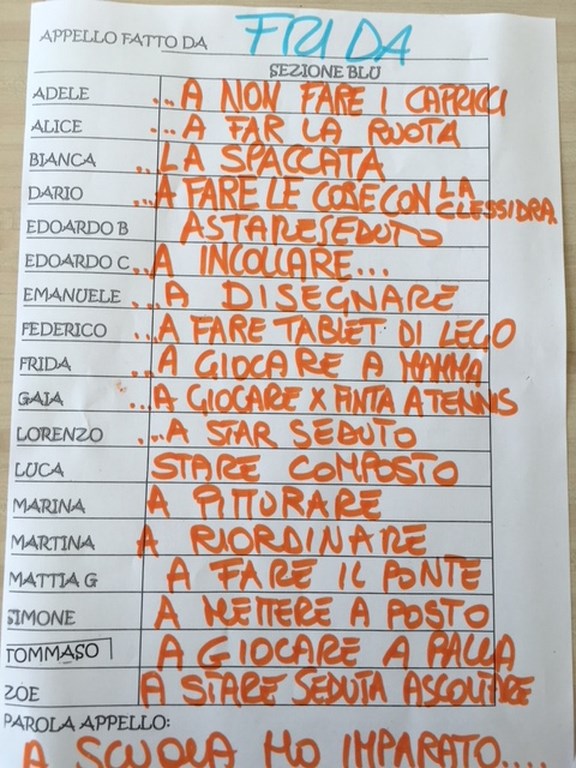 APPELLO FATTO DA FRIDA
SEZIONE BLU
ADELE ...A NON FARE I CAPRICCI
ALICE ...A FAR LA RUOTA
BIANCA ..LA SPACCATA
DARIO ...A FARE LE COSE CON LA CLESSIDRA
EDOARDO B A STARE SEDUTO
EDOARDO C ...A INCOLLARE...
EMANUELE ...A DISEGNARE
FEDERICO ...A FARE TABLET DI LEGO
FRIDA ...A GIOCARE A MAMMA
GAIA ...A GIOCARE X FINTA A TENNIS
LORENZO ...A STAR SEDUTO
LUCA STARE COMPOSTO
MARINA A PITTURARE
MARTINA A RIORDINARE
MATTIA G A FARE IL PONTE
SIMONE A METTERE A POSTO
TOMMASO A GIOCARE A PALLA
ZOE A STARE SEDUTA ASCOLTARE
PAROLA APPELLO:
A SCUOLA HO IMPARATO....